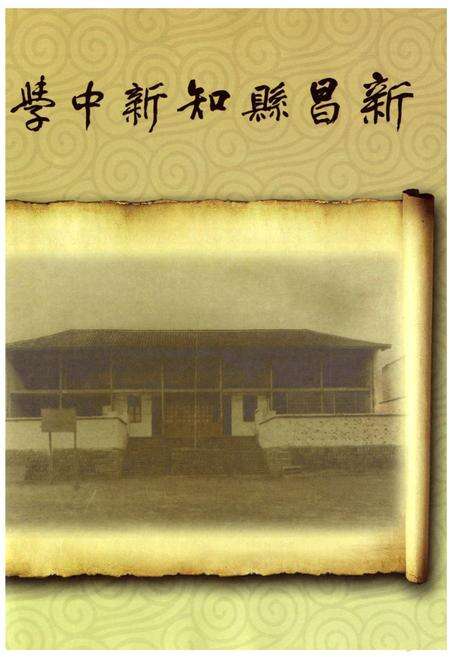 新昌縣知新中學